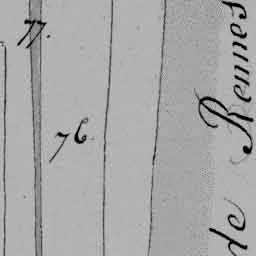 77.
76
de Rennes